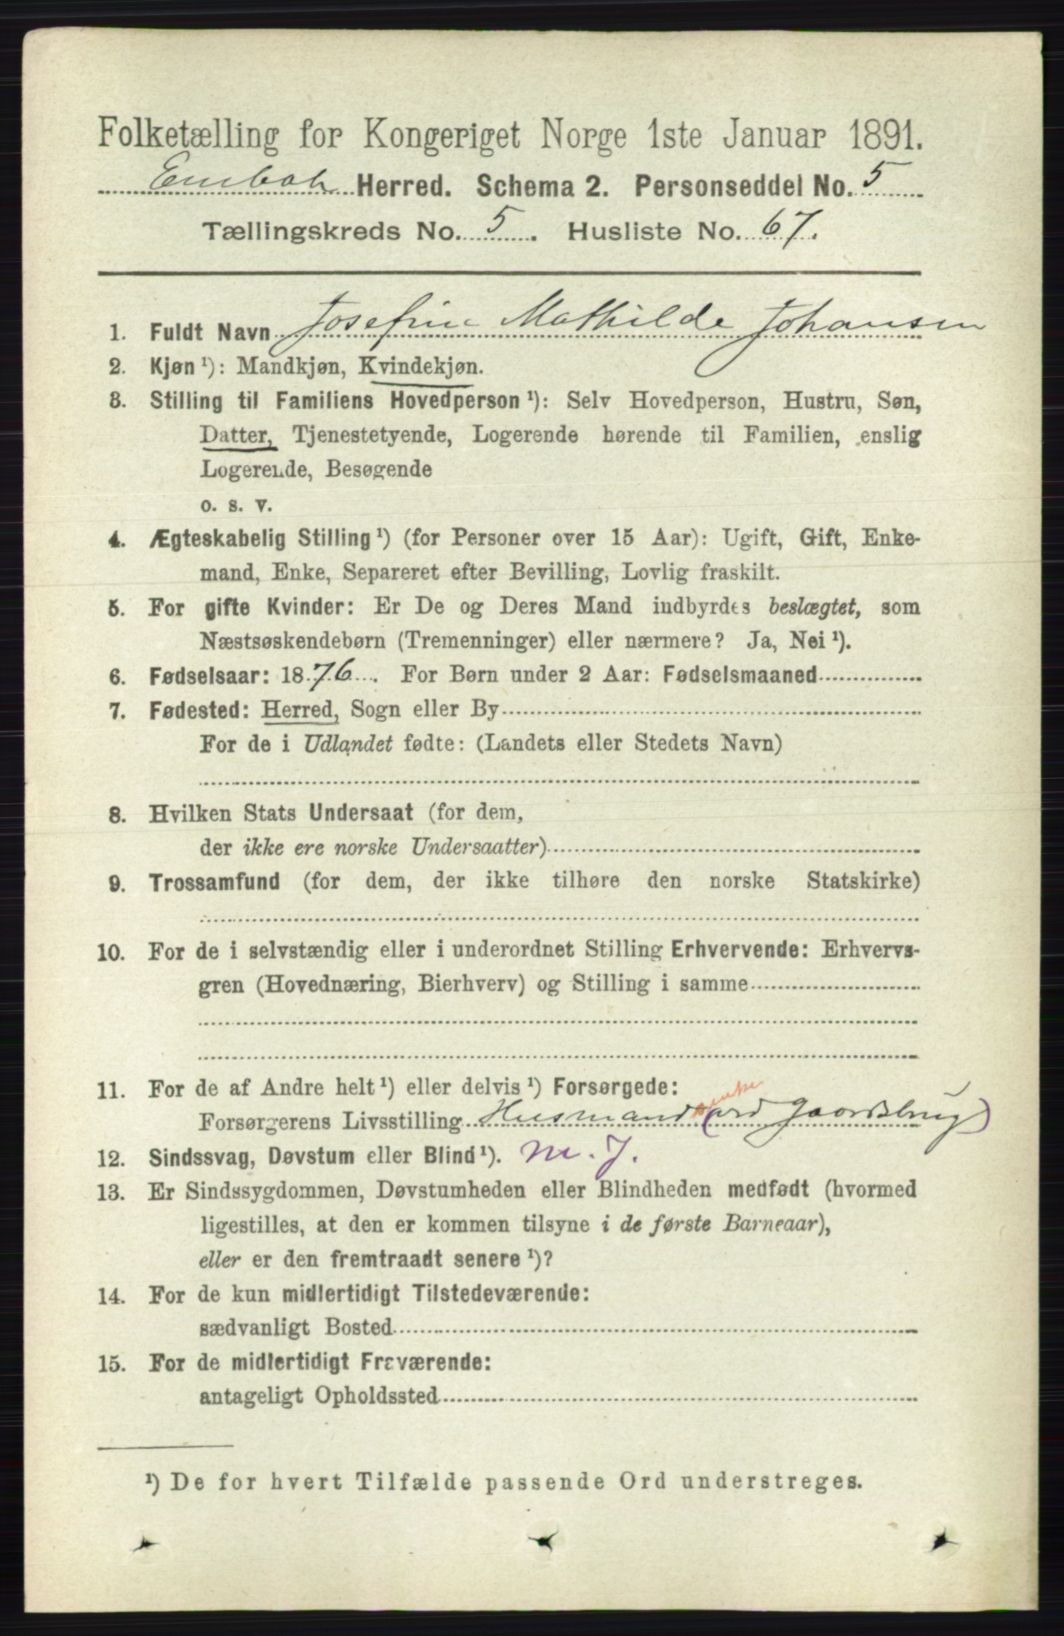 Folketælling for Kongeriget Norge 1ste Januar 1891.
Enebak Herred. Schema 2. Personseddel No. 5
Tællingskreds No. 5. Husliste No. 67.
1. Fuldt Navn Josefine Mathilde Johansen
2. Kjøn ¹): Mandkjøn, Kvindekjøn.
3. Stilling til Familiens Hovedperson ¹): Selv Hovedperson, Hustru, Søn,
Datter, Tjenestetyende, Logerende hørende til Familien, enslig
Logerende, Besøgende
o. s. v.
4. Ægteskabelig Stilling ¹) (for Personer over 15 Aar): Ugift, Gift, Enke-
mand, Enke, Separeret efter Bevilling, Lovlig fraskilt.
5. For gifte Kvinder: Er De og Deres Mand indbyrdes beslægtet, som
Næstsøskendebørn (Tremenninger) eller nærmere? Ja, Nei ¹).
6. Fødselsaar: 1876. For Børn under 2 Aar: Fødselsmaaned
7. Fødested: Herred, Sogn eller By
For de i Udlandet fødte: (Landets eller Stedets Navn)
8. Hvilken Stats Undersaat (for dem,
der ikke ere norske Undersaatter)
9. Trossamfund (for dem, der ikke tilhøre den norske Statskirke)
10. For de i selvstændig eller i underordnet Stilling Erhvervende: Erhvervs-
gren (Hovednæring, Bierhverv) og Stilling i samme
11. For de af Andre helt ¹) eller delvis ¹) Forsørgede:
Forsørgerens Livsstilling Husmand
12. Sindssvag, Døvstum eller Blind ¹). M. J.
13. Er Sindssygdommen, Døvstumheden eller Blindheden medfødt (hvormed
ligestilles, at den er kommen tilsyne i de første Barneaar),
eller er den fremtraadt senere ¹)?
14. For de kun midlertidigt Tilstedeværende:
sædvanligt Bosted
15. For de midlertidigt Fraværende:
antageligt Opholdssted
¹) De for hvert Tilfælde passende Ord understreges.